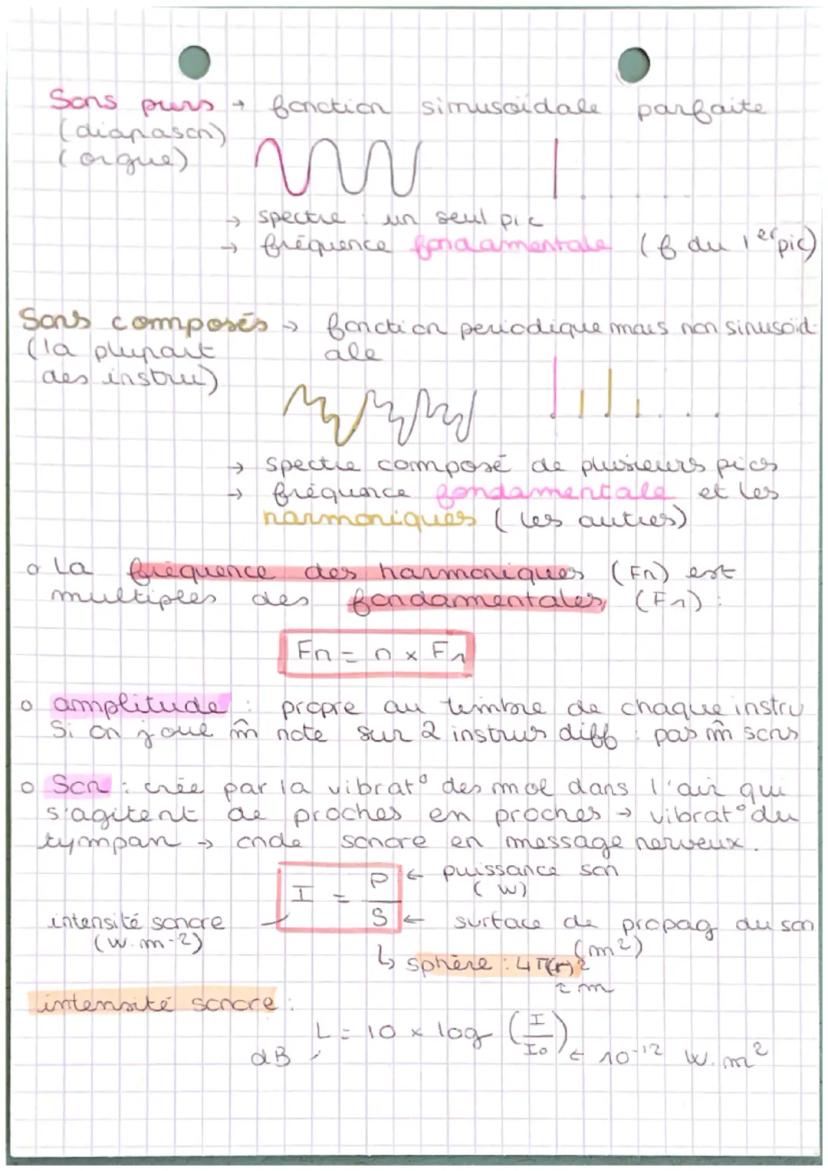 Sons purs → fonction sinusoïdale parfaite
(diapason)
(orgue)
→ spectre : un seul pic
→ fréquence fondamentale (f du 1er pic)
Sons composés → fonction periodique mais non sinusoïd-
(la plupart ale
des instru)
→ spectre composé de plusieurs pics
→ fréquence fondamentale et les
harmoniques (les autres)
o La fréquence des harmoniques (Fn) est
multiples des fondamentales (F1) :
Fn = n × F1
o amplitude : propre au timbre de chaque instru
Si on joue m̂ note sur 2 instrus diff : pas m̂ sons
o Son : crée par la vibrat° des mol dans l'air qui
s'agitent de proches en proches → vibrat° du
tympan → onde sonore en message nerveux.
I = P/S
← puissance son
(W)
intensité sonore
(W.m-2)
← surface de propag du son
(m²)
↳ sphère : 4π(r)²
= m
intensité sonore :
L = 10 × log (I/I0)
dB
← 10-12 W.m²